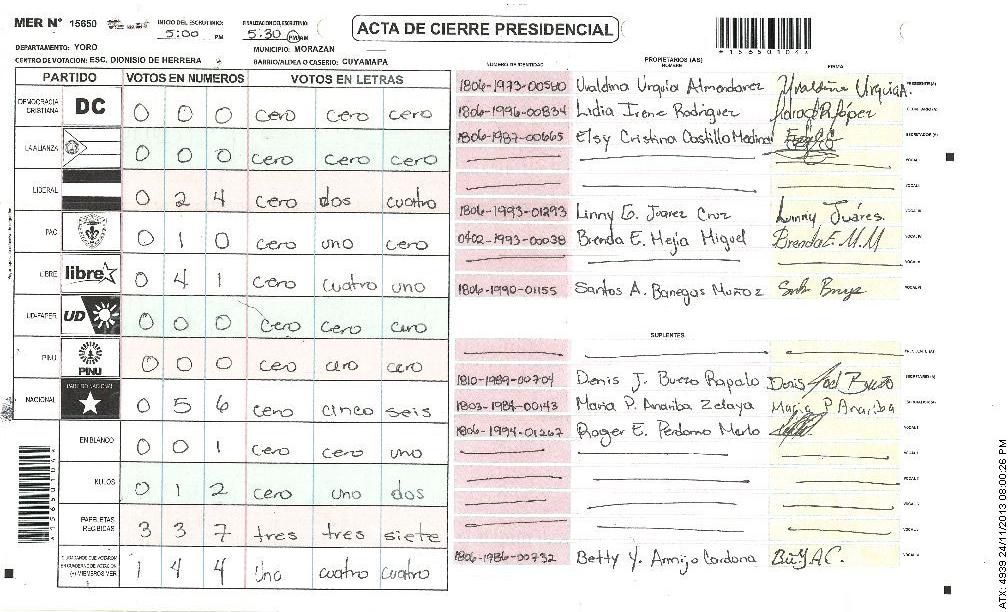 MER Nº 15650
INICIO DEL ESCRUTINIO: 5:00 PM
FINALIZACION DEL ESCRUTINIO: 5:30 PM/AM
ACTA DE CIERRE PRESIDENCIAL
*15650104*
DEPARTAMENTO: YORO
MUNICIPIO: MORAZAN
CENTRO DE VOTACION: ESC. DIONISIO DE HERRERA
BARRIO/ALDEA O CASERIO: CUYAMAPA
PARTIDO VOTOS EN NUMEROS VOTOS EN LETRAS
DEMOCRACIA CRISTIANA DC 0 0 0 cero cero cero
LA ALIANZA 0 0 0 cero cero cero
LIBERAL 0 2 4 cero dos cuatro
PAC 0 1 0 cero uno cero
LIBRE libre 0 4 1 cero cuatro uno
UD-FAPER UD 0 0 0 cero cero cero
PINU PINU 0 0 0 cero cero cero
NACIONAL PARTIDO NACIONAL 0 5 6 cero cinco seis
EN BLANCO 0 0 1 cero cero uno
NULOS 0 1 2 cero uno dos
PAPELETAS RECIBIDAS 3 3 7 tres tres siete
(+) MIEMBROS MER 1 4 4 Uno cuatro cuatro
NUMERO DE IDENTIDAD PROPIETARIOS (AS) NOMBRE FIRMA
1806-1973-00560 Uvaldina Urquia Almendarez Uvaldina Urquia A. PRESIDENTE(A)
1806-1996-00834 Lidia Irene Rodriguez
1806-1987-00665 Elsy Cristina Castillo Medina SECRETARIO (A)
VOCAL I
VOCAL II
1806-1993-01293 Linny G. Juarez Cruz Linny Juáres. VOCAL III
0402-1993-00038 Brenda E. Mejia Miguel Brenda E. M.M VOCAL IV
VOCAL V
1806-1990-01155 Santos A. Banegas Muñoz VOCAL VI
SUPLENTES
1810-1989-00704 Denis J. Buezo Rapalo
1803-1984-00143 Maria P. Anariba Zelaya Maria P Anariba
1806-1994-01267 Roger E. Perdomo Merlo VOCAL I
1806-1986-00732 Betty Y. Armijo Cardona
ATX: 4939 24/11/2013 08:00:26 PM